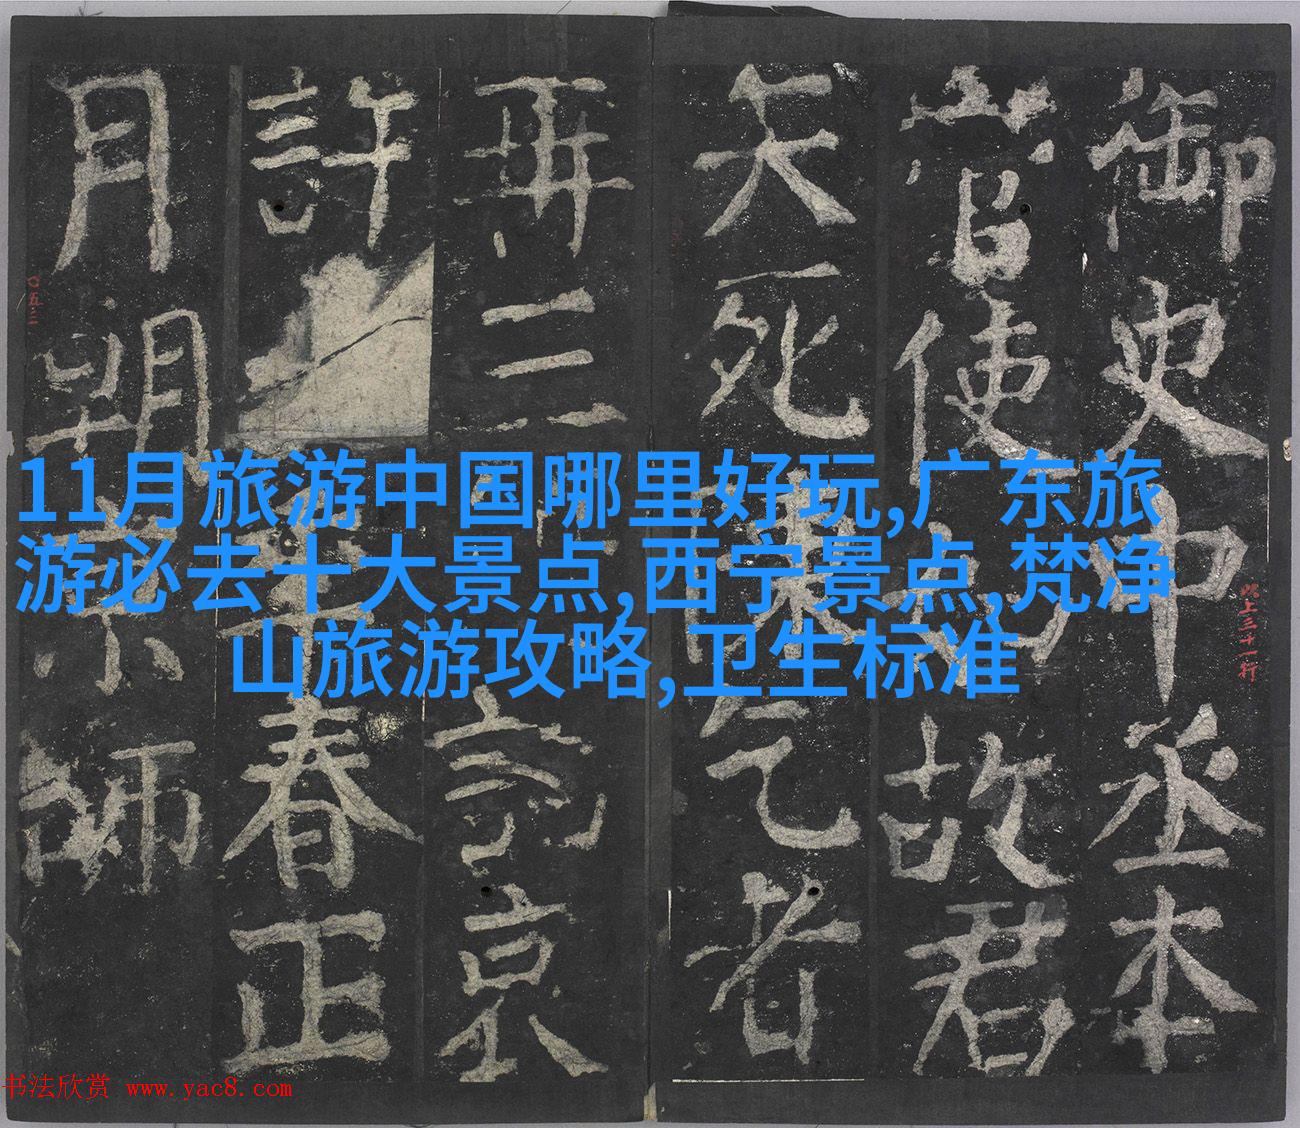 11月旅游中国哪里好玩,广东旅
游必去十大景点,西宁景点,梵净
山旅游攻略,卫生标准
御史中丞本
使故君
死乞者
再三京
許春正
月朔京師
此上三十一行
〇五三
书法欣赏 www.yac8.com